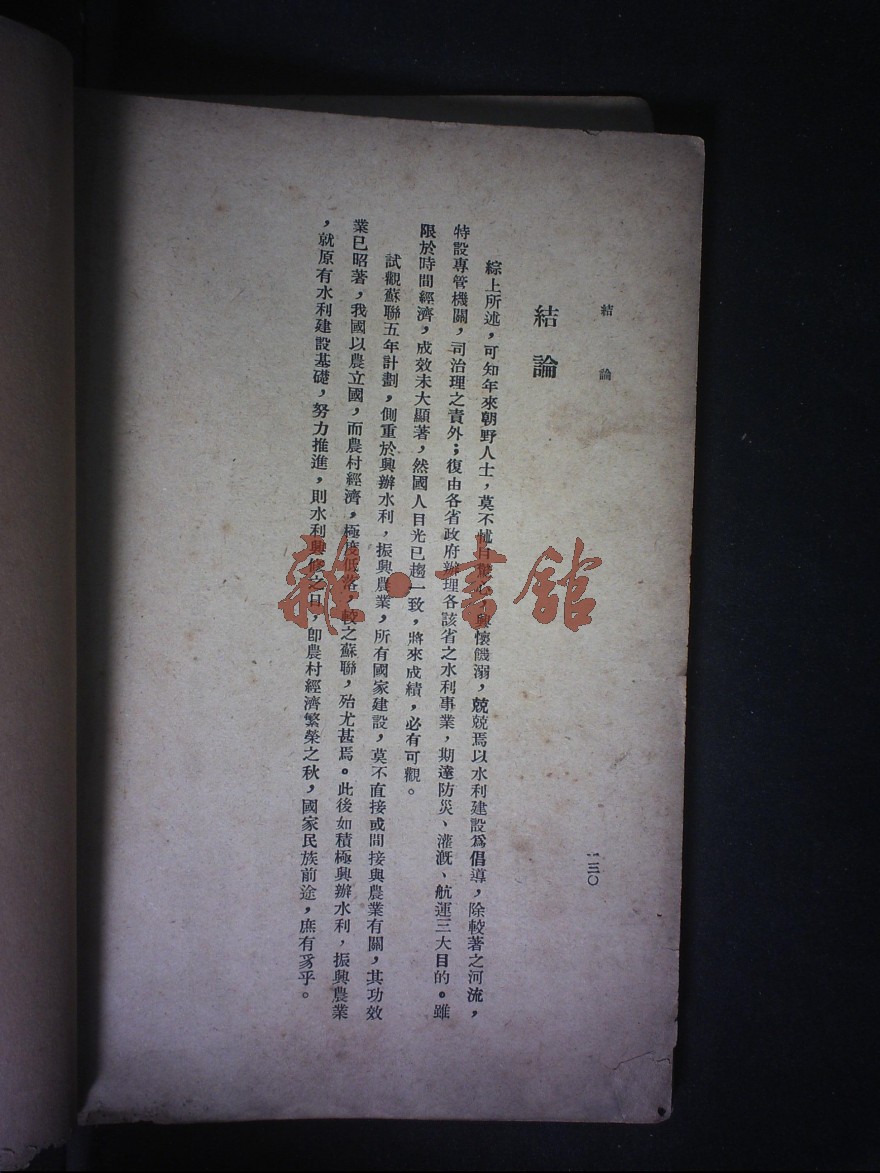 結論
一三〇
結論
綜上所述，可知年來朝野人士，莫不怵目驚心，興懷饑溺，兢兢焉以水利建設為倡導，除較著之河流，
特設專管機關，司治理之責外；復由各省政府辦理各該省之水利事業，期達防災、灌漑、航運三大目的。雖
限於時間經濟，成效未大顯著，然國人目光已趨一致，將來成績，必有可觀。
試觀蘇聯五年計劃，側重於興辦水利，振興農業，所有國家建設，莫不直接或間接與農業有關，其功效
業已昭著，我國以農立國，而農村經濟，極度低落，較之蘇聯，殆尤甚焉。此後如積極興辦水利，振興農業
，就原有水利建設基礎，努力推進，則水利興修之日，即農村經濟繁榮之秋，國家民族前途，庶有豸乎。
雜·書館